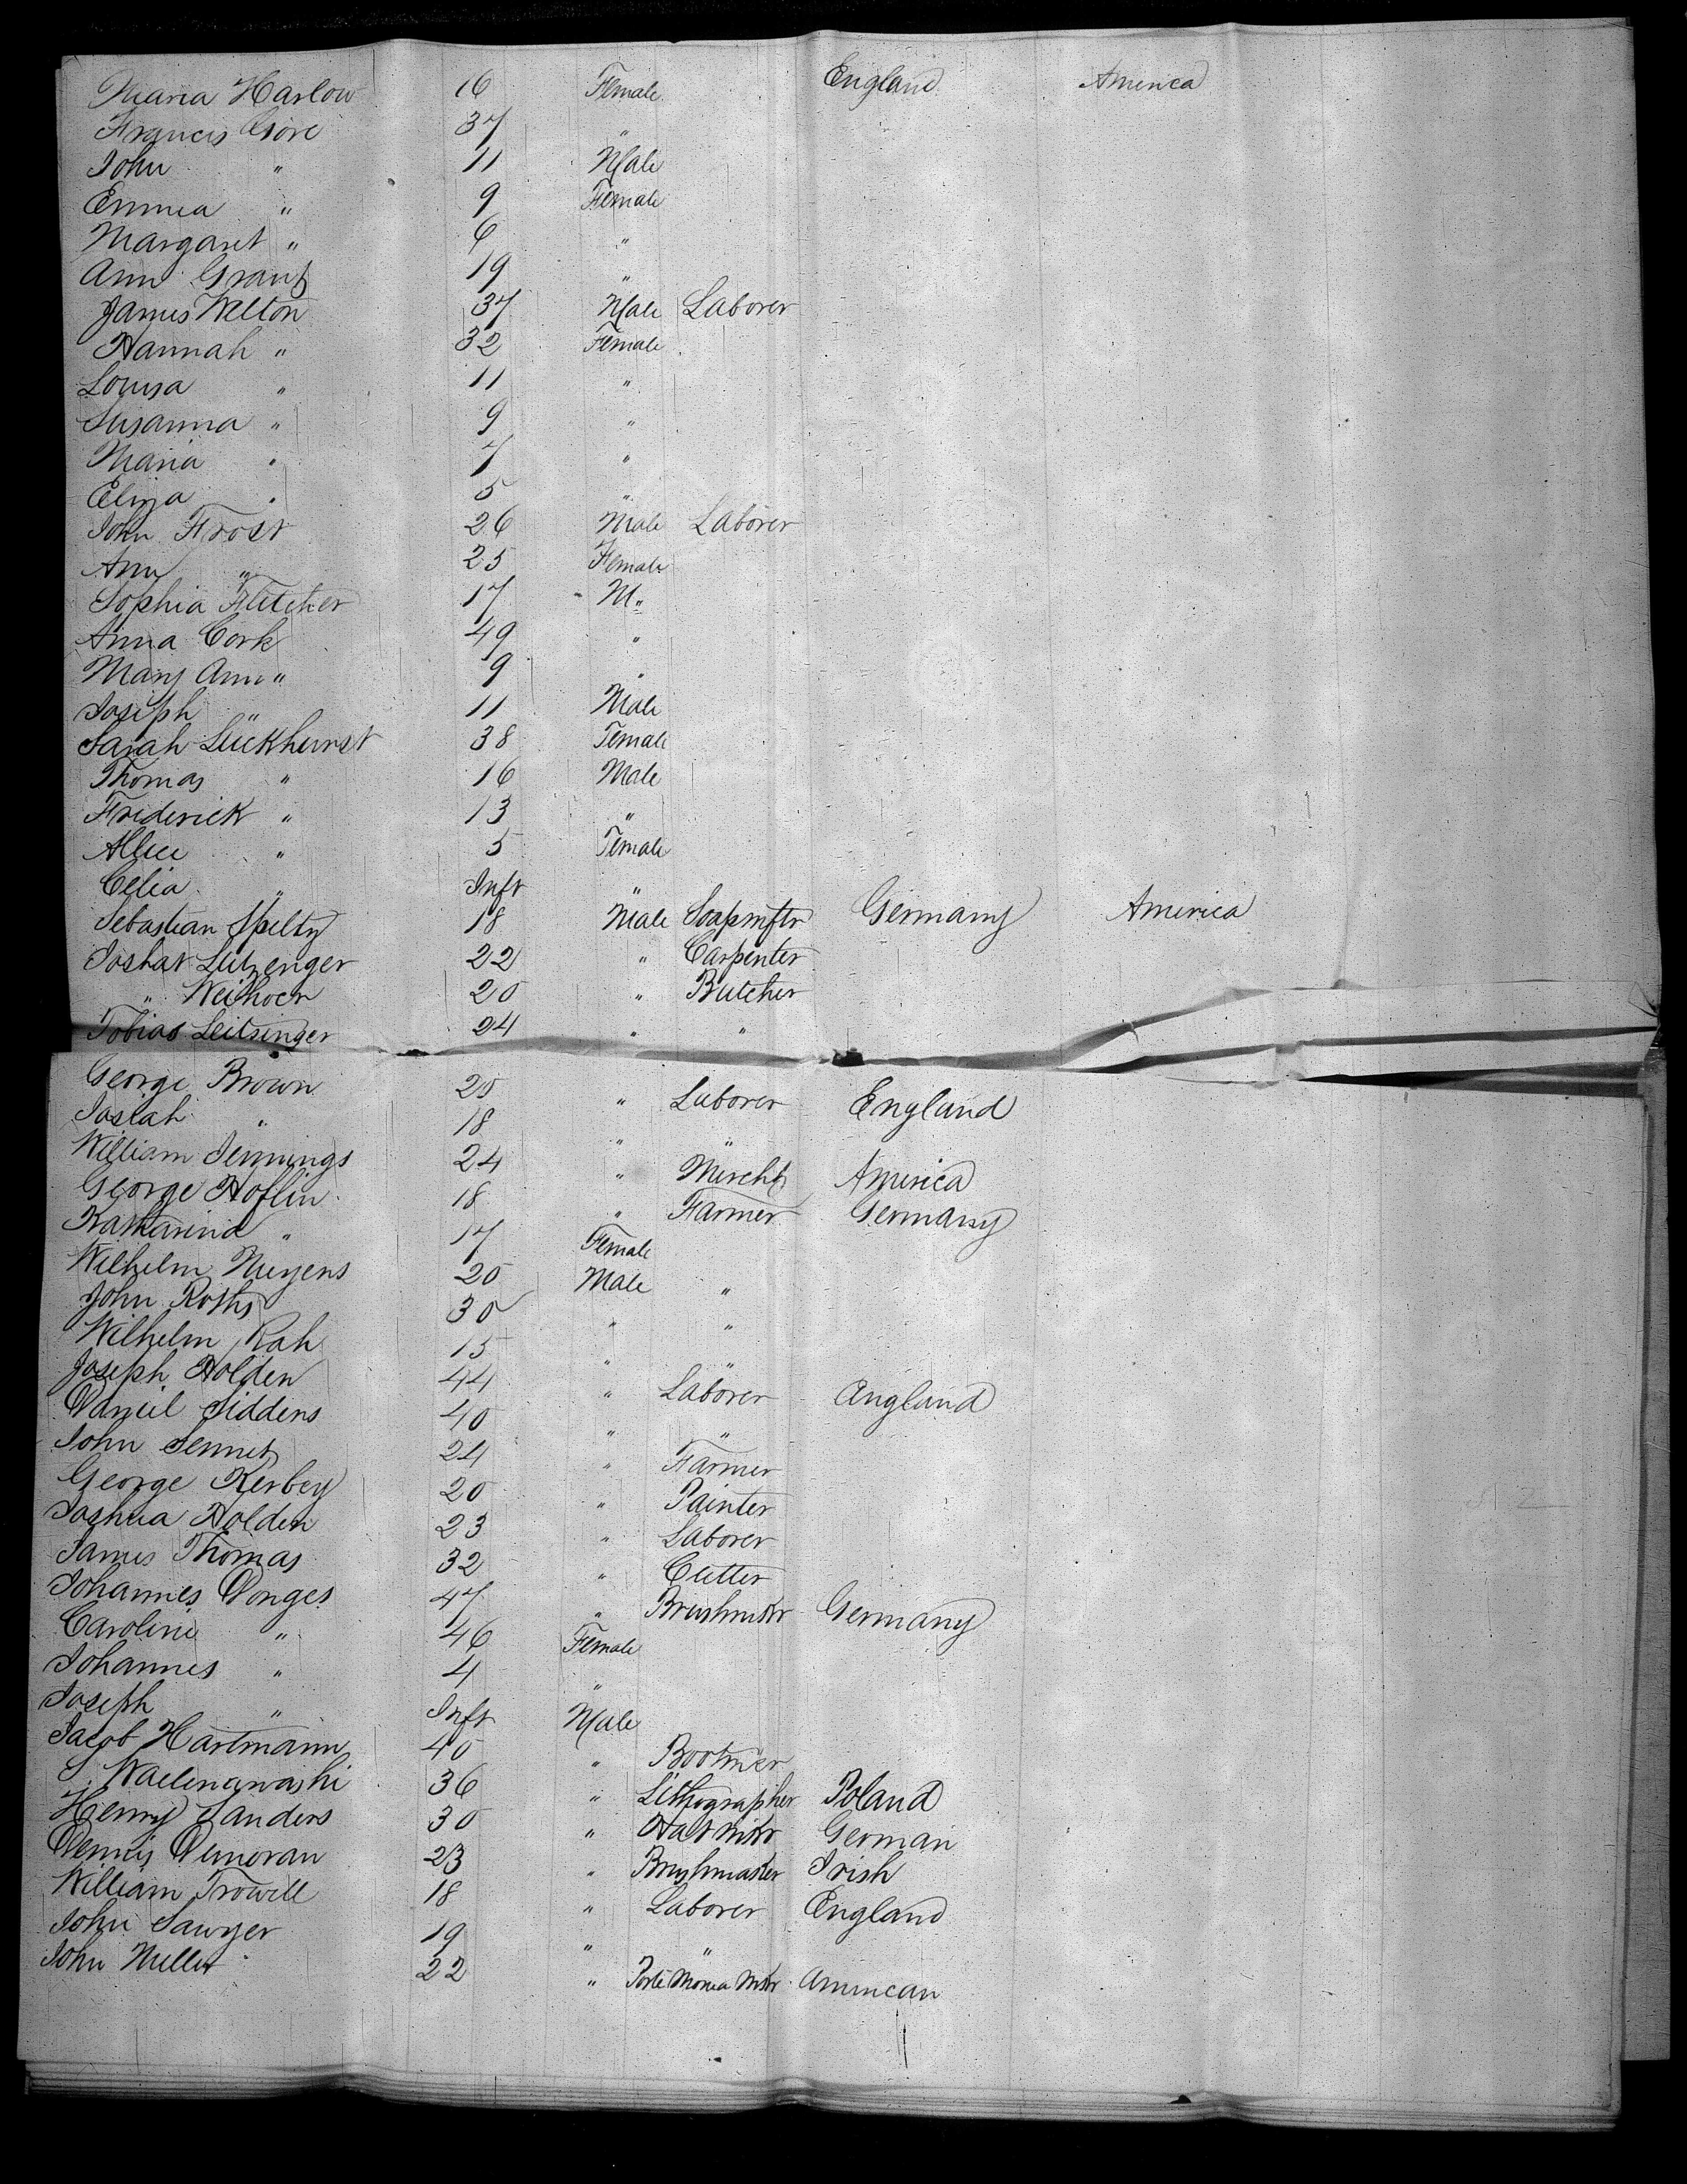 Maria Harlow 16 Female England America
Francis Gore 37 "
John " 11 Male
Emma " 9 Female
Margaret " 6 "
Ann Grant 19 "
James Welton 37 Male Laborer
Hannah " 32 Female
Louisa " 11 "
Susanna " 9 "
Maria " 7 "
Eliza " 5 "
John Frost 26 Male Laborer
Ann " 25 Female
Sophia Fletcher 17 M"
Anna Cork 49 "
Mary Ann " 9 "
Joseph " 11 Male
Sarah Luckhurst 38 Female
Thomas " 16 Male
Frederick " 13 "
Allice " 5 Female
Celia " Inft "
Sebastian Spelty 18 Male Germany America
Leitzenger 22 " Carpenter
" 20 " Butcher
Tobias Leitsinger 24 " "
George Brown 25 " Laborer England
Josiah " 18 " "
William Jennings 24 " Mercht America
George Hoflin 18 " Farmer Germany
Katharina " 17 Female
Wilhelm 20 Male "
John 30 " "
Wilhelm Rah 15 " "
Joseph Holden 44 " Laborer England
Daniel Siddens 40 " "
John Sennet 24 " Farmer
George Kerbey 20 " Painter
Joshua Holden 23 " Laborer
James Thomas 32 " Cutter
Johannes Donges 47 " Brushmkr Germany
Caroline " 46 Female
Johannes " 4 "
Joseph " Inft Male
Jacob Hartmann 40 "
S. 36 " Lithographer Poland
Henry Sanders 30 " Hat mkr German
Dennis Dunovan 23 " Brushmaker Irish
William Trowell 18 " Laborer England
John Sawyer 19 " "
John 22 " Porte Monea Mkr American